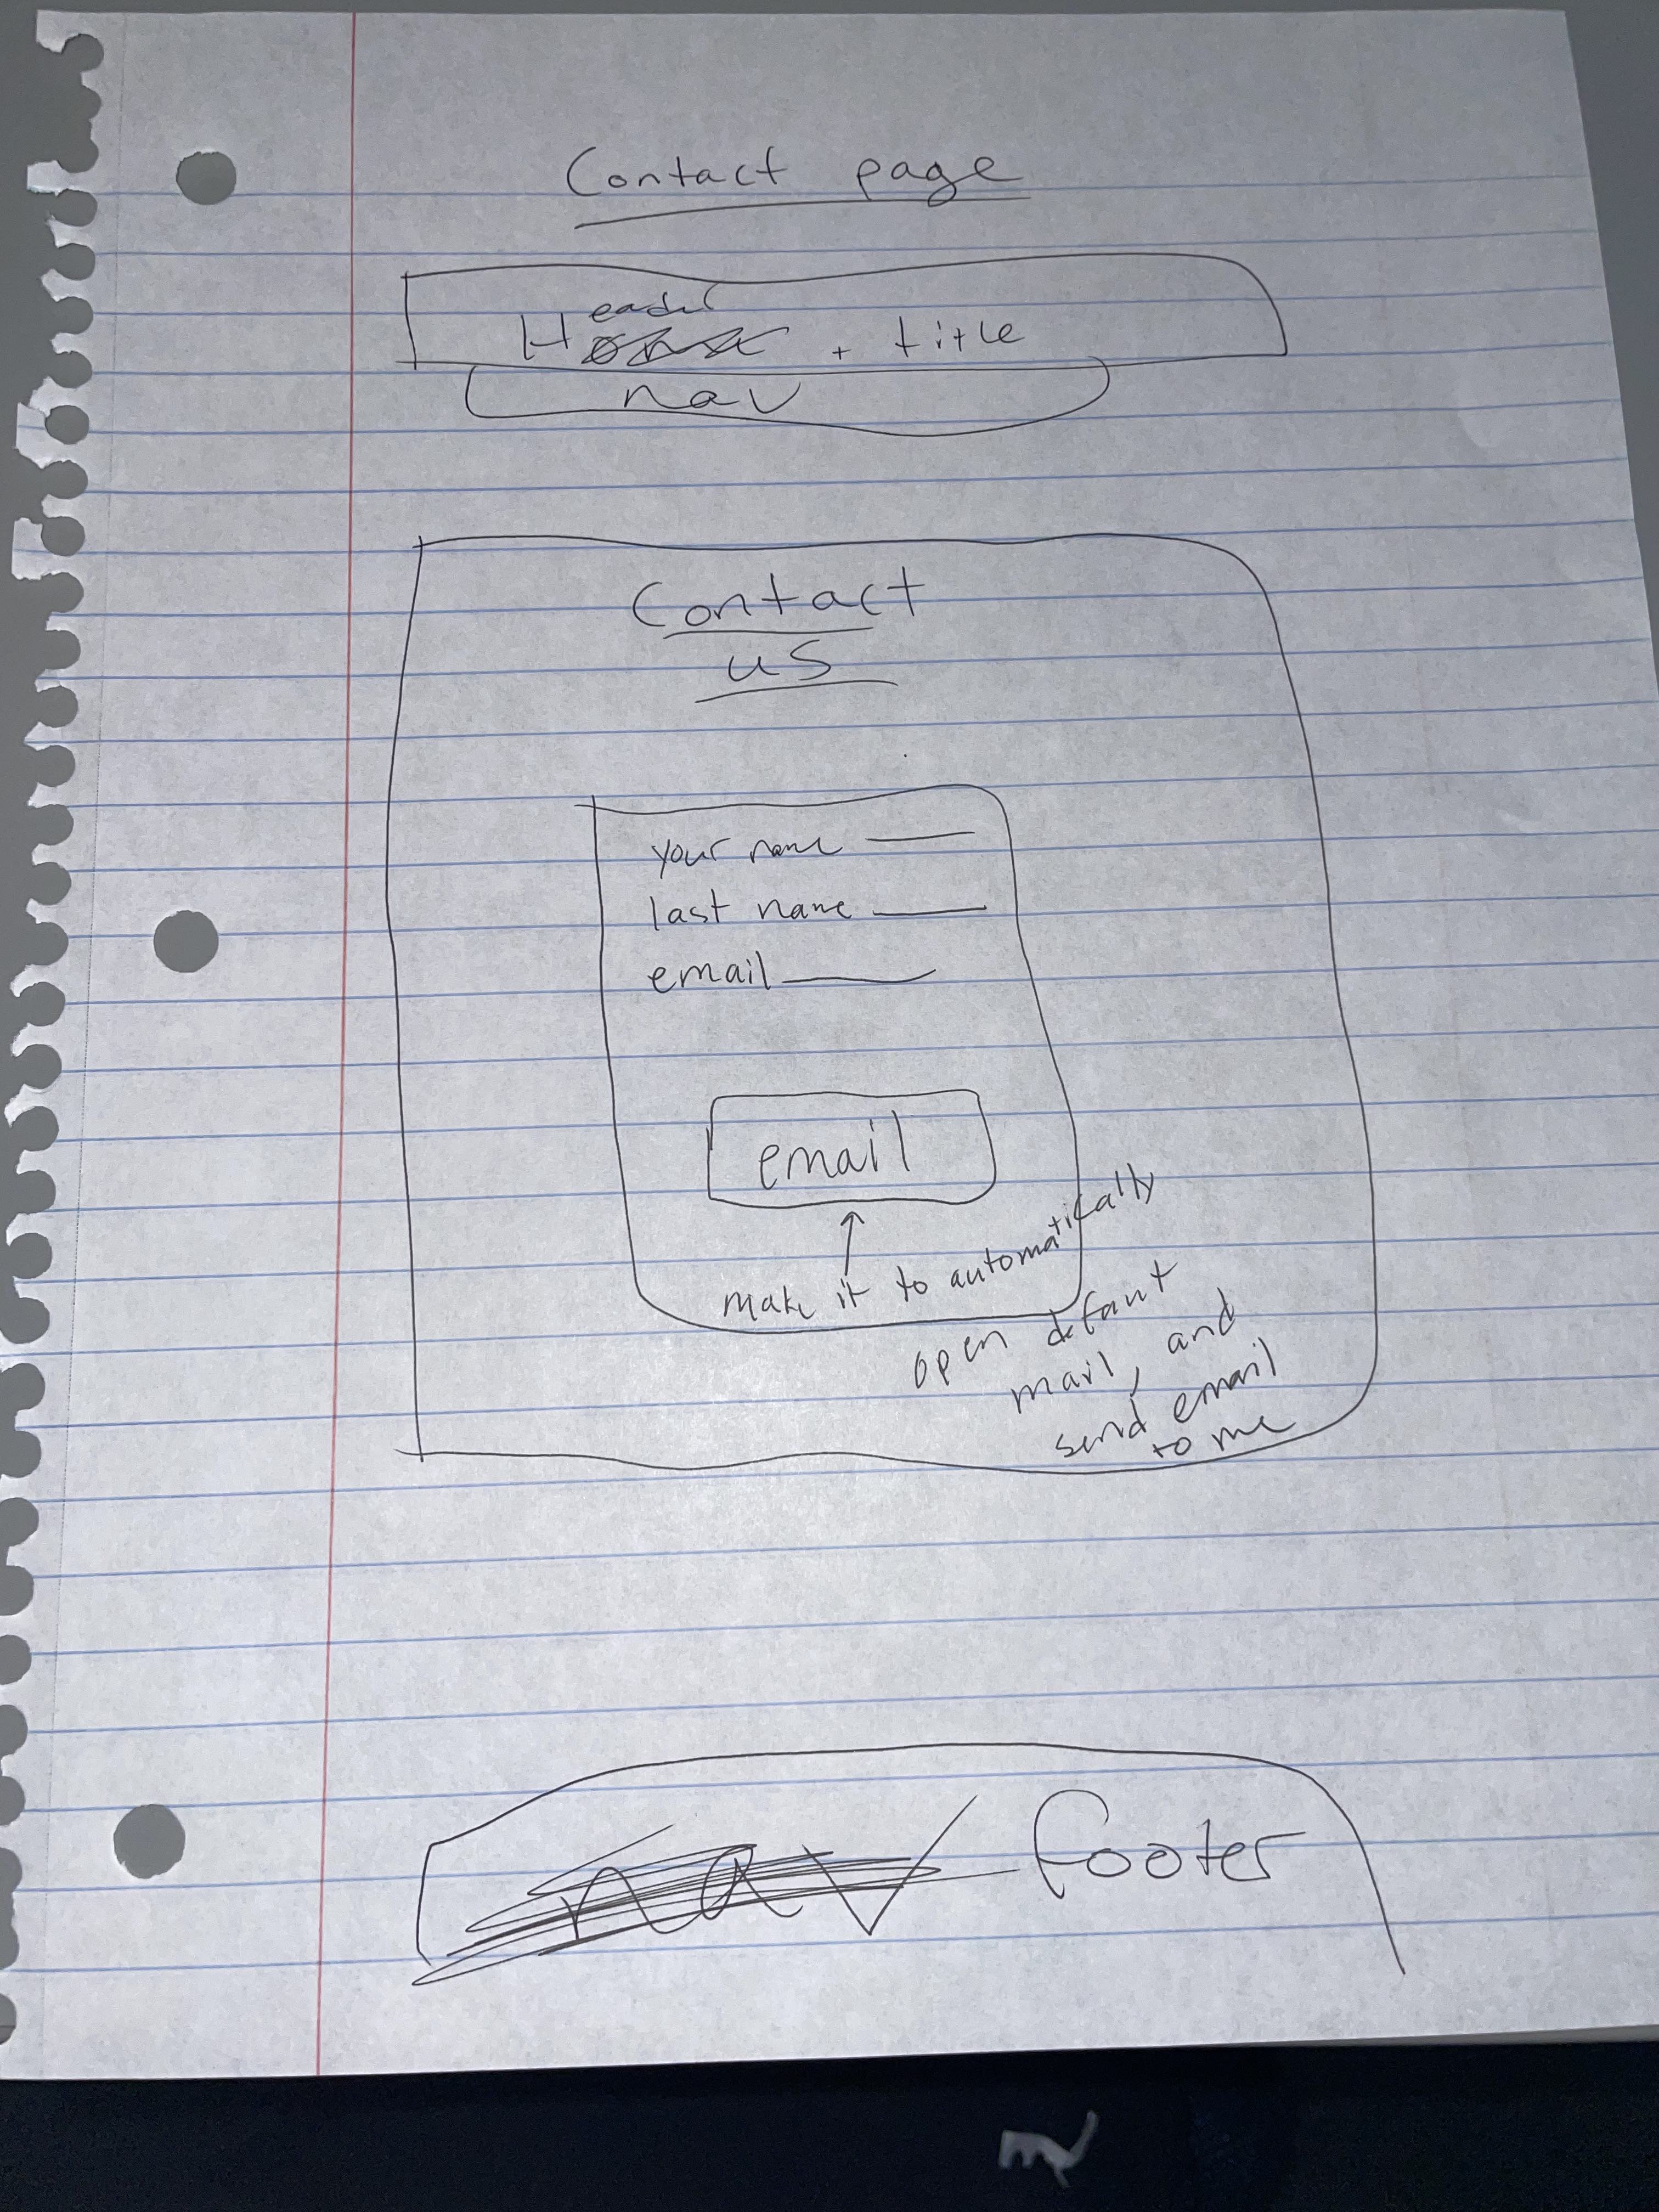 Contact page
Header + title
nav
Contact
us
your name
last name
email
email
make it to automatically
open defaut
mail, and
send email
to me
nav footer